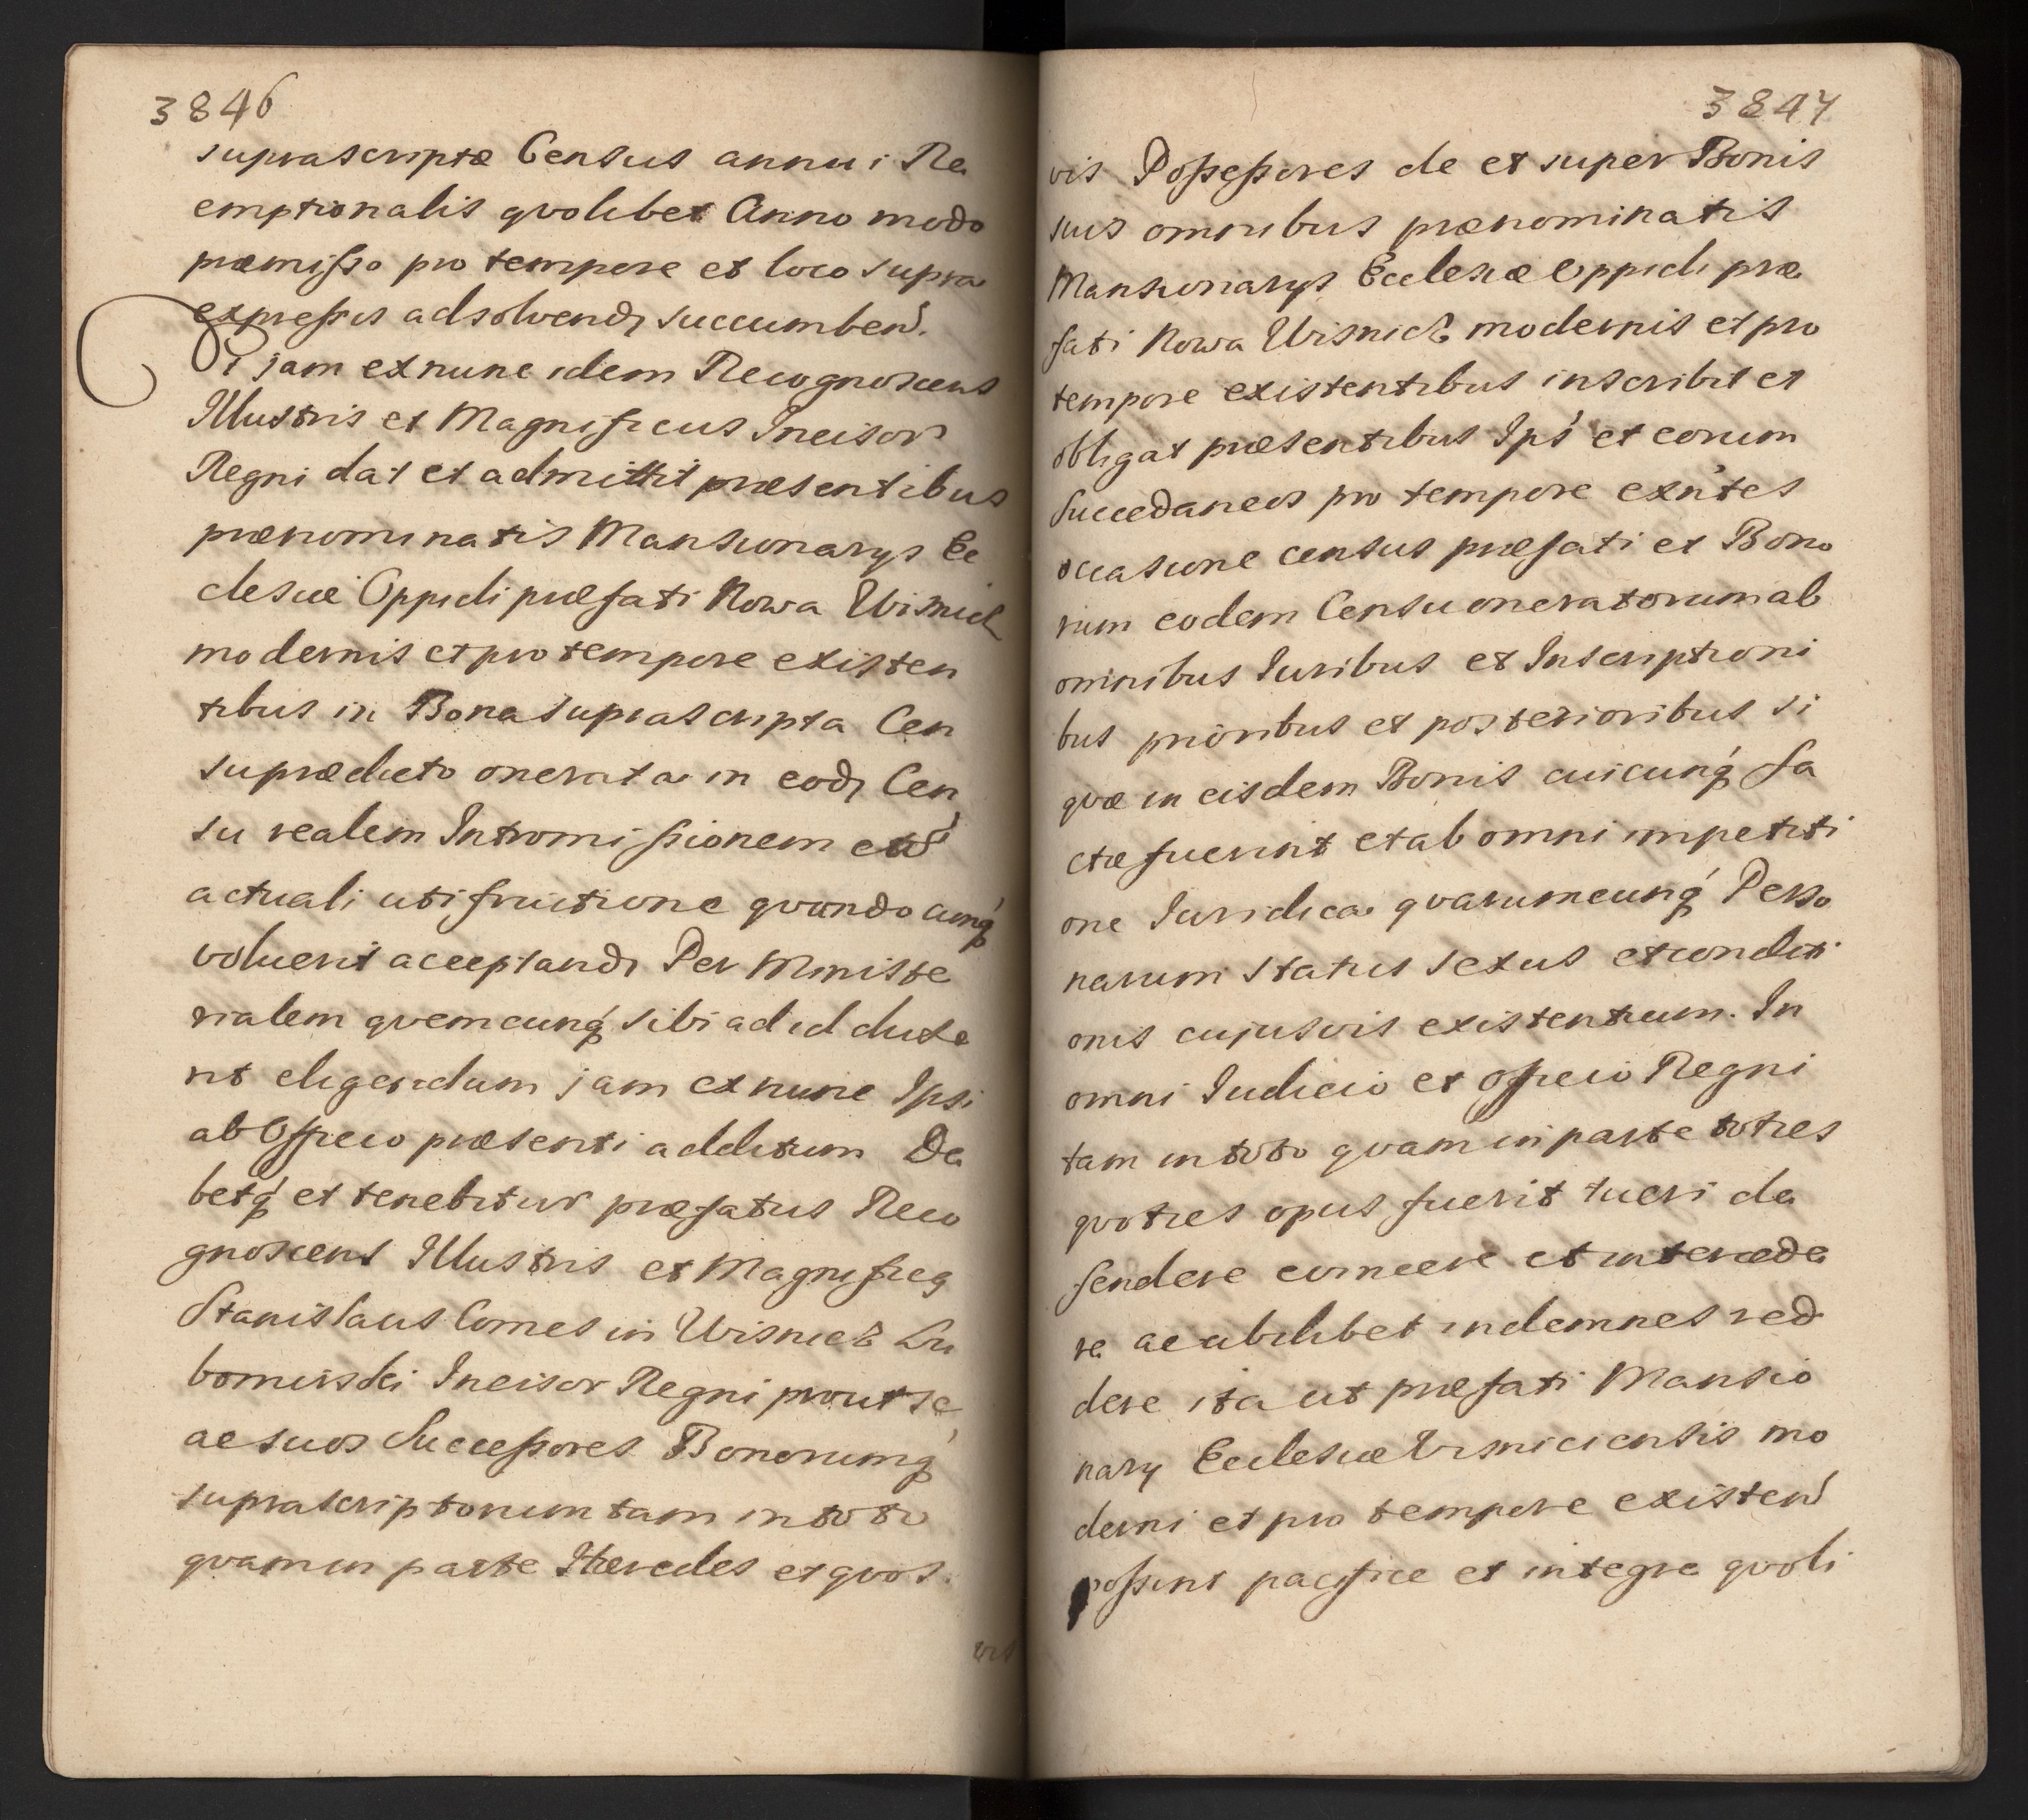 3846
suprascriptæ Census annui Re
emptionalis qvolibet Anno modo
præmisso pro tempore et loco supra
expressis adsolvendȝ succumbend.
Qui jam ex nunc idem Recognoscens
Illustris et Magnificus Incisor
Regni dat et admittit præsentibus
prænominatis Mansionarys Ec
clesiæ Oppidi præfati Nowa Wisnicz
modernis et pro tempore existen
tibus in Bona suprascripta Cen
su prædicto onerata in eodȝ Cen
su realem Intromissionem cum
actuali utifruitione qvandocunq́
voluerit acceptandȝ Per Ministe
rialem qvemcunq́ sibi ad id duxe
rit eligendum jam ex nunc Ipsi
ab Officio præsenti additum De
betq́ et tenebitur præfatus Reco
gnoscens Illustris et Magnificq
Stanislaus Comes in Wisnicz Lu
bomirski Incisor Regni prout se
ac suos Successores Bonorumq́
suprascriptorum tam in toto
qvam in parte Hæredes et qvos.
vis
3847
vis Possessores de et super Bonis
suis omnibus prænominatis
Mansionarys Ecclesiæ Oppidi præ
fati Nowa Wisnicz modernis et pro
tempore existentibus inscribit et
obligat præsentibus Ips' et eorum
Succedaneos pro tempore exn'tes
occasione census præfati et Bono
rum eodem Censu oneratorum ab
omnibus Iuribus et Inscriptioni
bus prioribus et posterioribus si
qvæ in eisdem Bonis cuicunq́ fa
ctæ fuerint et ab omni impetiti
one Iuridica qvarumcunq́ Perso
narum status sexus et conditi
onis cujusvis existentium. In
omni Iudicio et Officio Regni
tam in toto qvam in parte toties
qvoties opus fuerit tueri de
fendere evincere et intercede
re ac ubilibet indemnes red
dere ita ut præfati Mansio
nary Ecclesiæ Visniciensis mo
derni et pro tempore existend
possint pacifice et integre qvoli